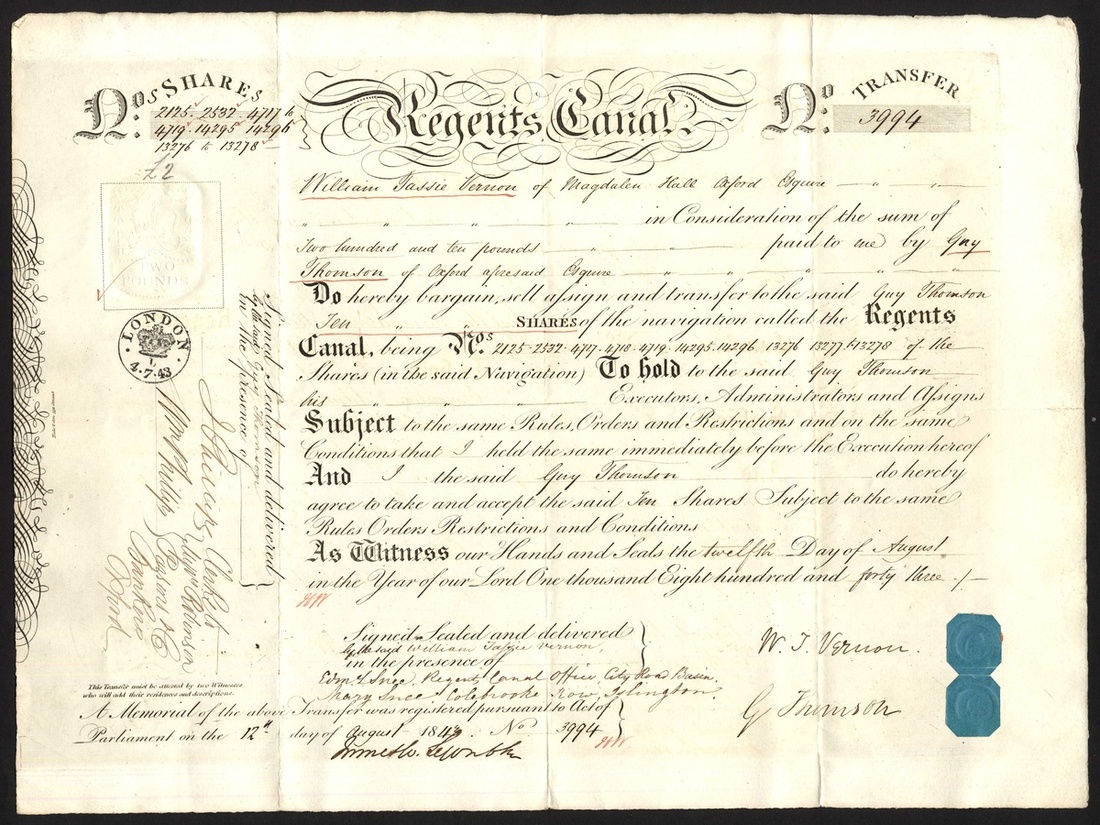 Nos SHARES
2125. 2532. 4717 to
4719. 14295. 14296
13276 to 13278
£2
Regents Canal.
No. TRANSFER
3994
TWO
POUNDS
LONDON
4.7.43
William Tassie Vernon of Magdalen Hall Oxford Esquire
in Consideration of the sum of
Two hundred and ten pounds paid to me by Guy
Thomson of Oxford aforesaid Esquire
Do hereby bargain, sell assign and transfer to the said Guy Thomson
Ten SHARES of the navigation called the Regents
Canal, being Nos. 2125 - 2532 - 4717 - 4718 - 4719. 14295. 14296 13276 13277 & 13278 of the
Shares (in the said Navigation) To hold to the said Guy Thomson
his Executors, Administrators and Assigns
Subject to the same Rules, Orders and Restrictions and on the same
Conditions that I held the same immediately before the Execution hereof
And I the said Guy Thomson do hereby
agree to take and accept the said Ten Shares Subject to the same
Rules Orders Restrictions and Conditions
As Witness our Hands and Seals the twelfth Day of August
in the Year of our Lord One thousand Eight hundred and forty three
Signed Sealed and delivered
by the said William Tassie Vernon,
in the presence of
Edmd. L. Snee. Regents Canal Office, City Road Basin.
Mary Snee. Colebrooke Row, Islington
W. T. Vernon.
G Thomson
Signed Sealed and delivered
by the said Guy Thomson
in the presence of
Clerk to
Parsons & Co
Bankers
Oxford
This Transfer must be attested by two Witnesses
who will add their residences and descriptions.
A Memorial of the above Transfer was registered pursuant to Act of
Parliament on the 12th day of August 1843. No 3994